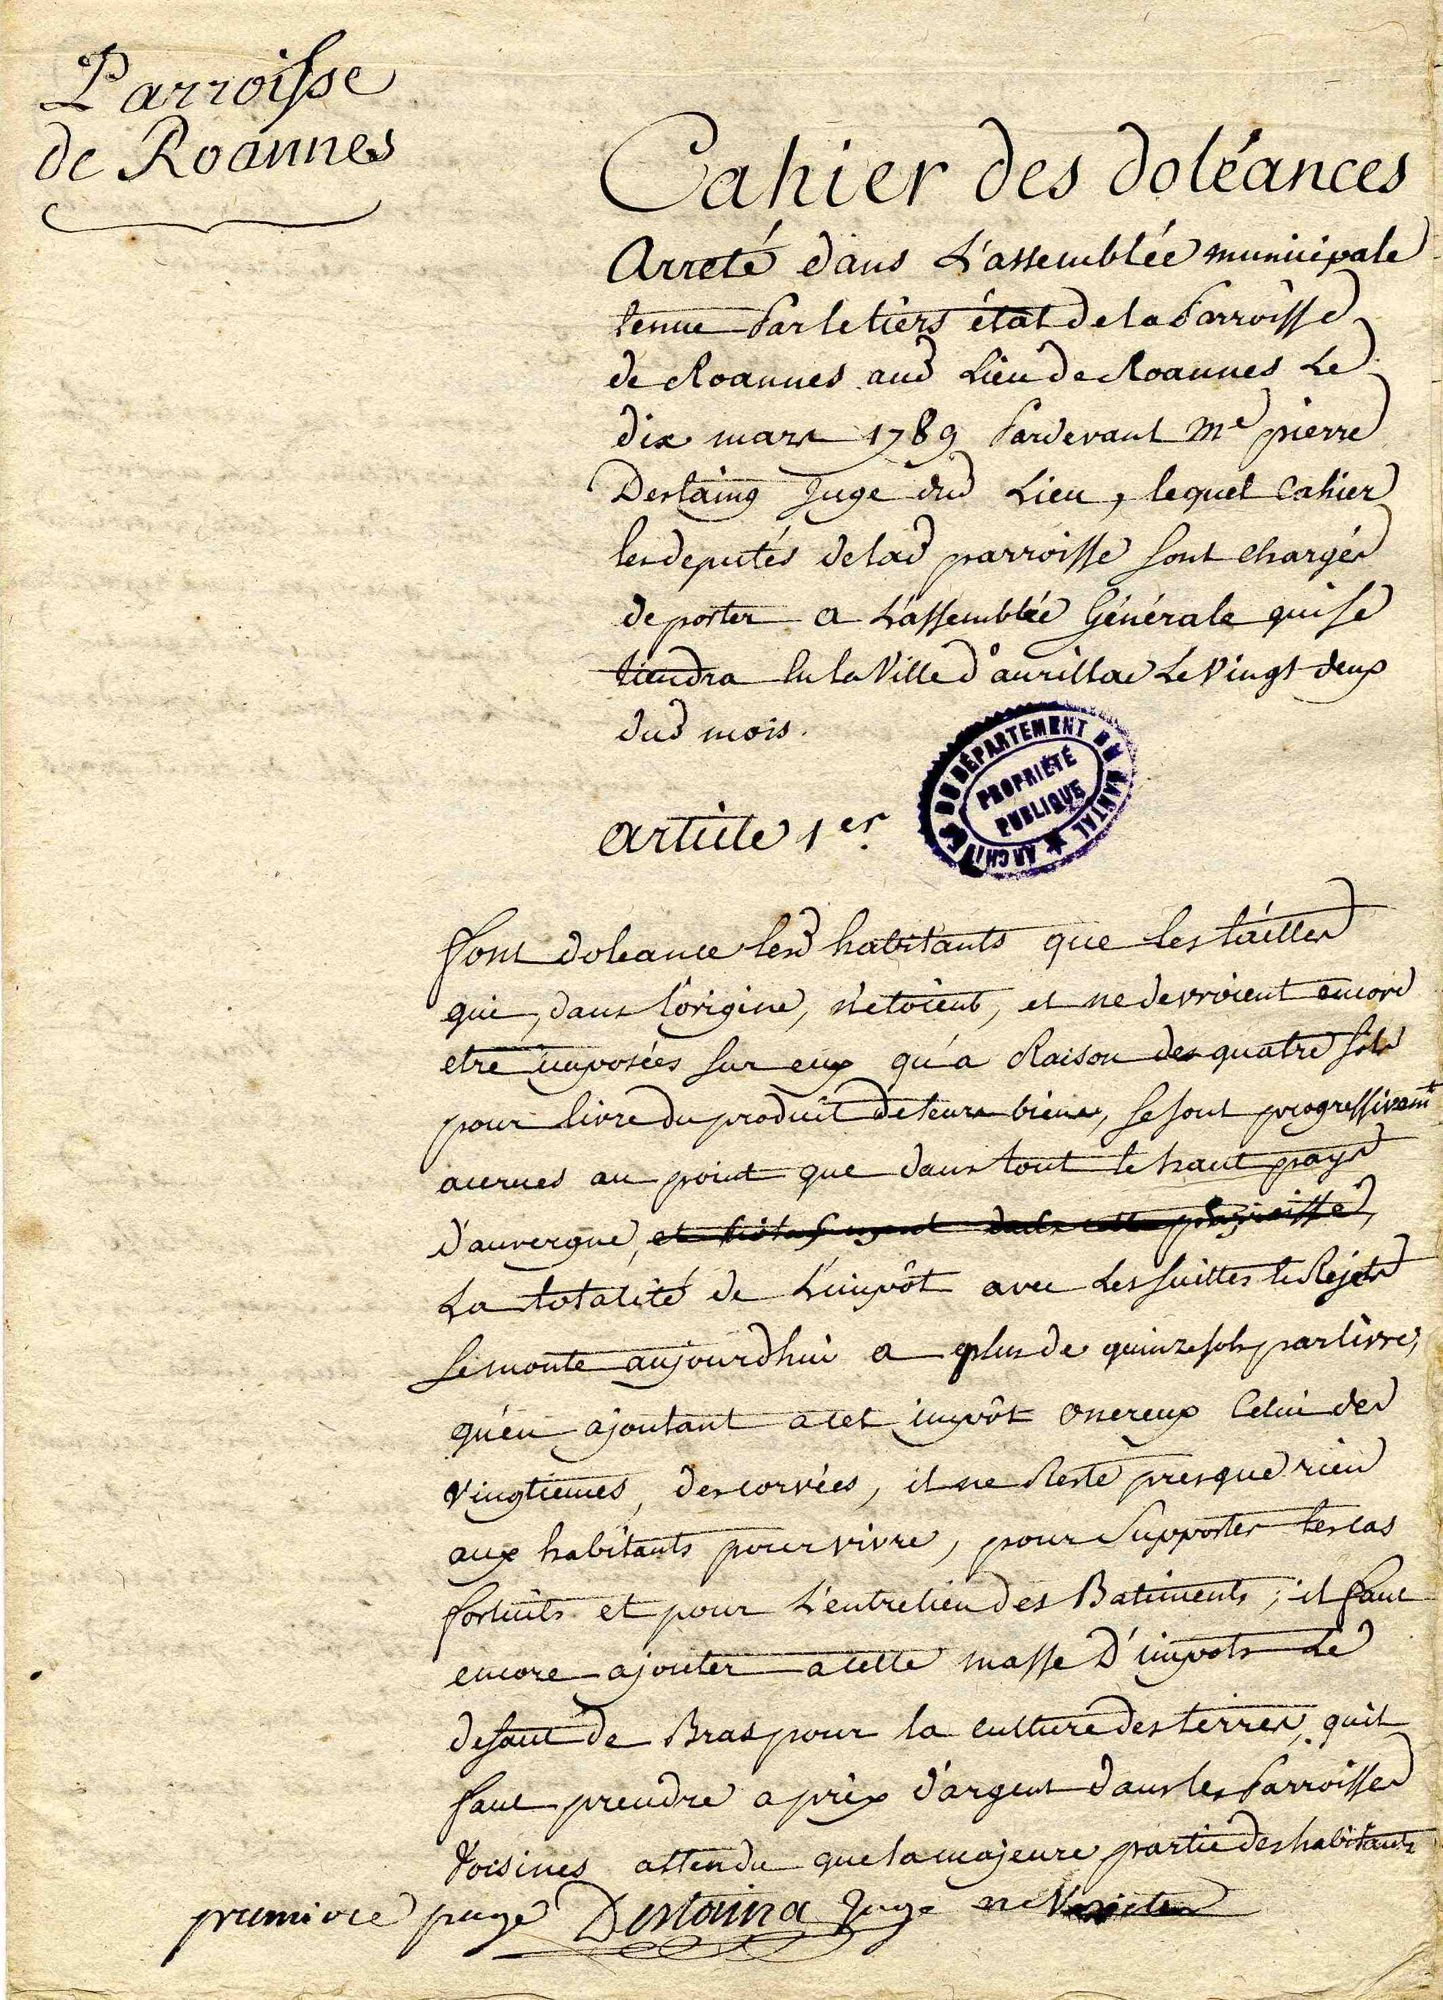 Parroisse
de Roannes
Cahier des doléances
Arreté dans L'assemblée municipale
tenue Par le tiers état de la Parroisse
de Roannes aud Lieu de Roannes Le
dix mars 1789 Pardevant Me pierre
Destaing Juge dud Lieu, lequel Cahier
les deputés de lad parroisse sont chargés
de porter a L'assemblée Générale qui se
tiendra en la Ville d'aurillac Le Vingt deux
dud mois.
ARCHIVES DU DÉPARTEMENT DU CANTAL
PROPRIÉTÉ
PUBLIQUE
article 1er.
font doleance lesd habitants que les tailles
qui, dans l'origine, n'etoient, et ne devroient encore
etre imposées sur eux qu'a Raison des quatre sols
pour livre du produit de leurs biens, se sont progressivemt
accrues au point que dans tout le haut pays
d'auvergne,
La totalité de L'impôt avec Les suittes le Rejets
se monte aujourd'hui a plus de quinze sols par livre,
qu'en ajoutant a cet impôt onereux Celui des
vingtiemes, des corvées, il ne Reste presque rien
aux habitants pour vivre, pour Supporter les cas
fortuits et pour L'entretien des Batiments; il faut
encore ajouter a cette masse D'impots Le
defaut de Bras pour la culture des terres, quil
faut prendre a prix d'argent dans les Parroisses
Voisines attendu que la majeure partie des habitants
premiere page Destaing Juge ne Varietur